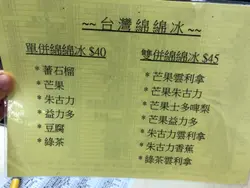 ~~ 台灣綿綿冰 ~~
單併綿綿冰 $40
* 蕃石榴
* 芒果
* 朱古力
* 益力多
* 豆腐
* 綠茶
雙併綿綿冰 $45
* 芒果雲利拿
* 芒果朱古力
* 芒果士多啤梨
* 芒果益力多
* 朱古力雲利拿
* 朱古力香蕉
* 綠茶雲利拿